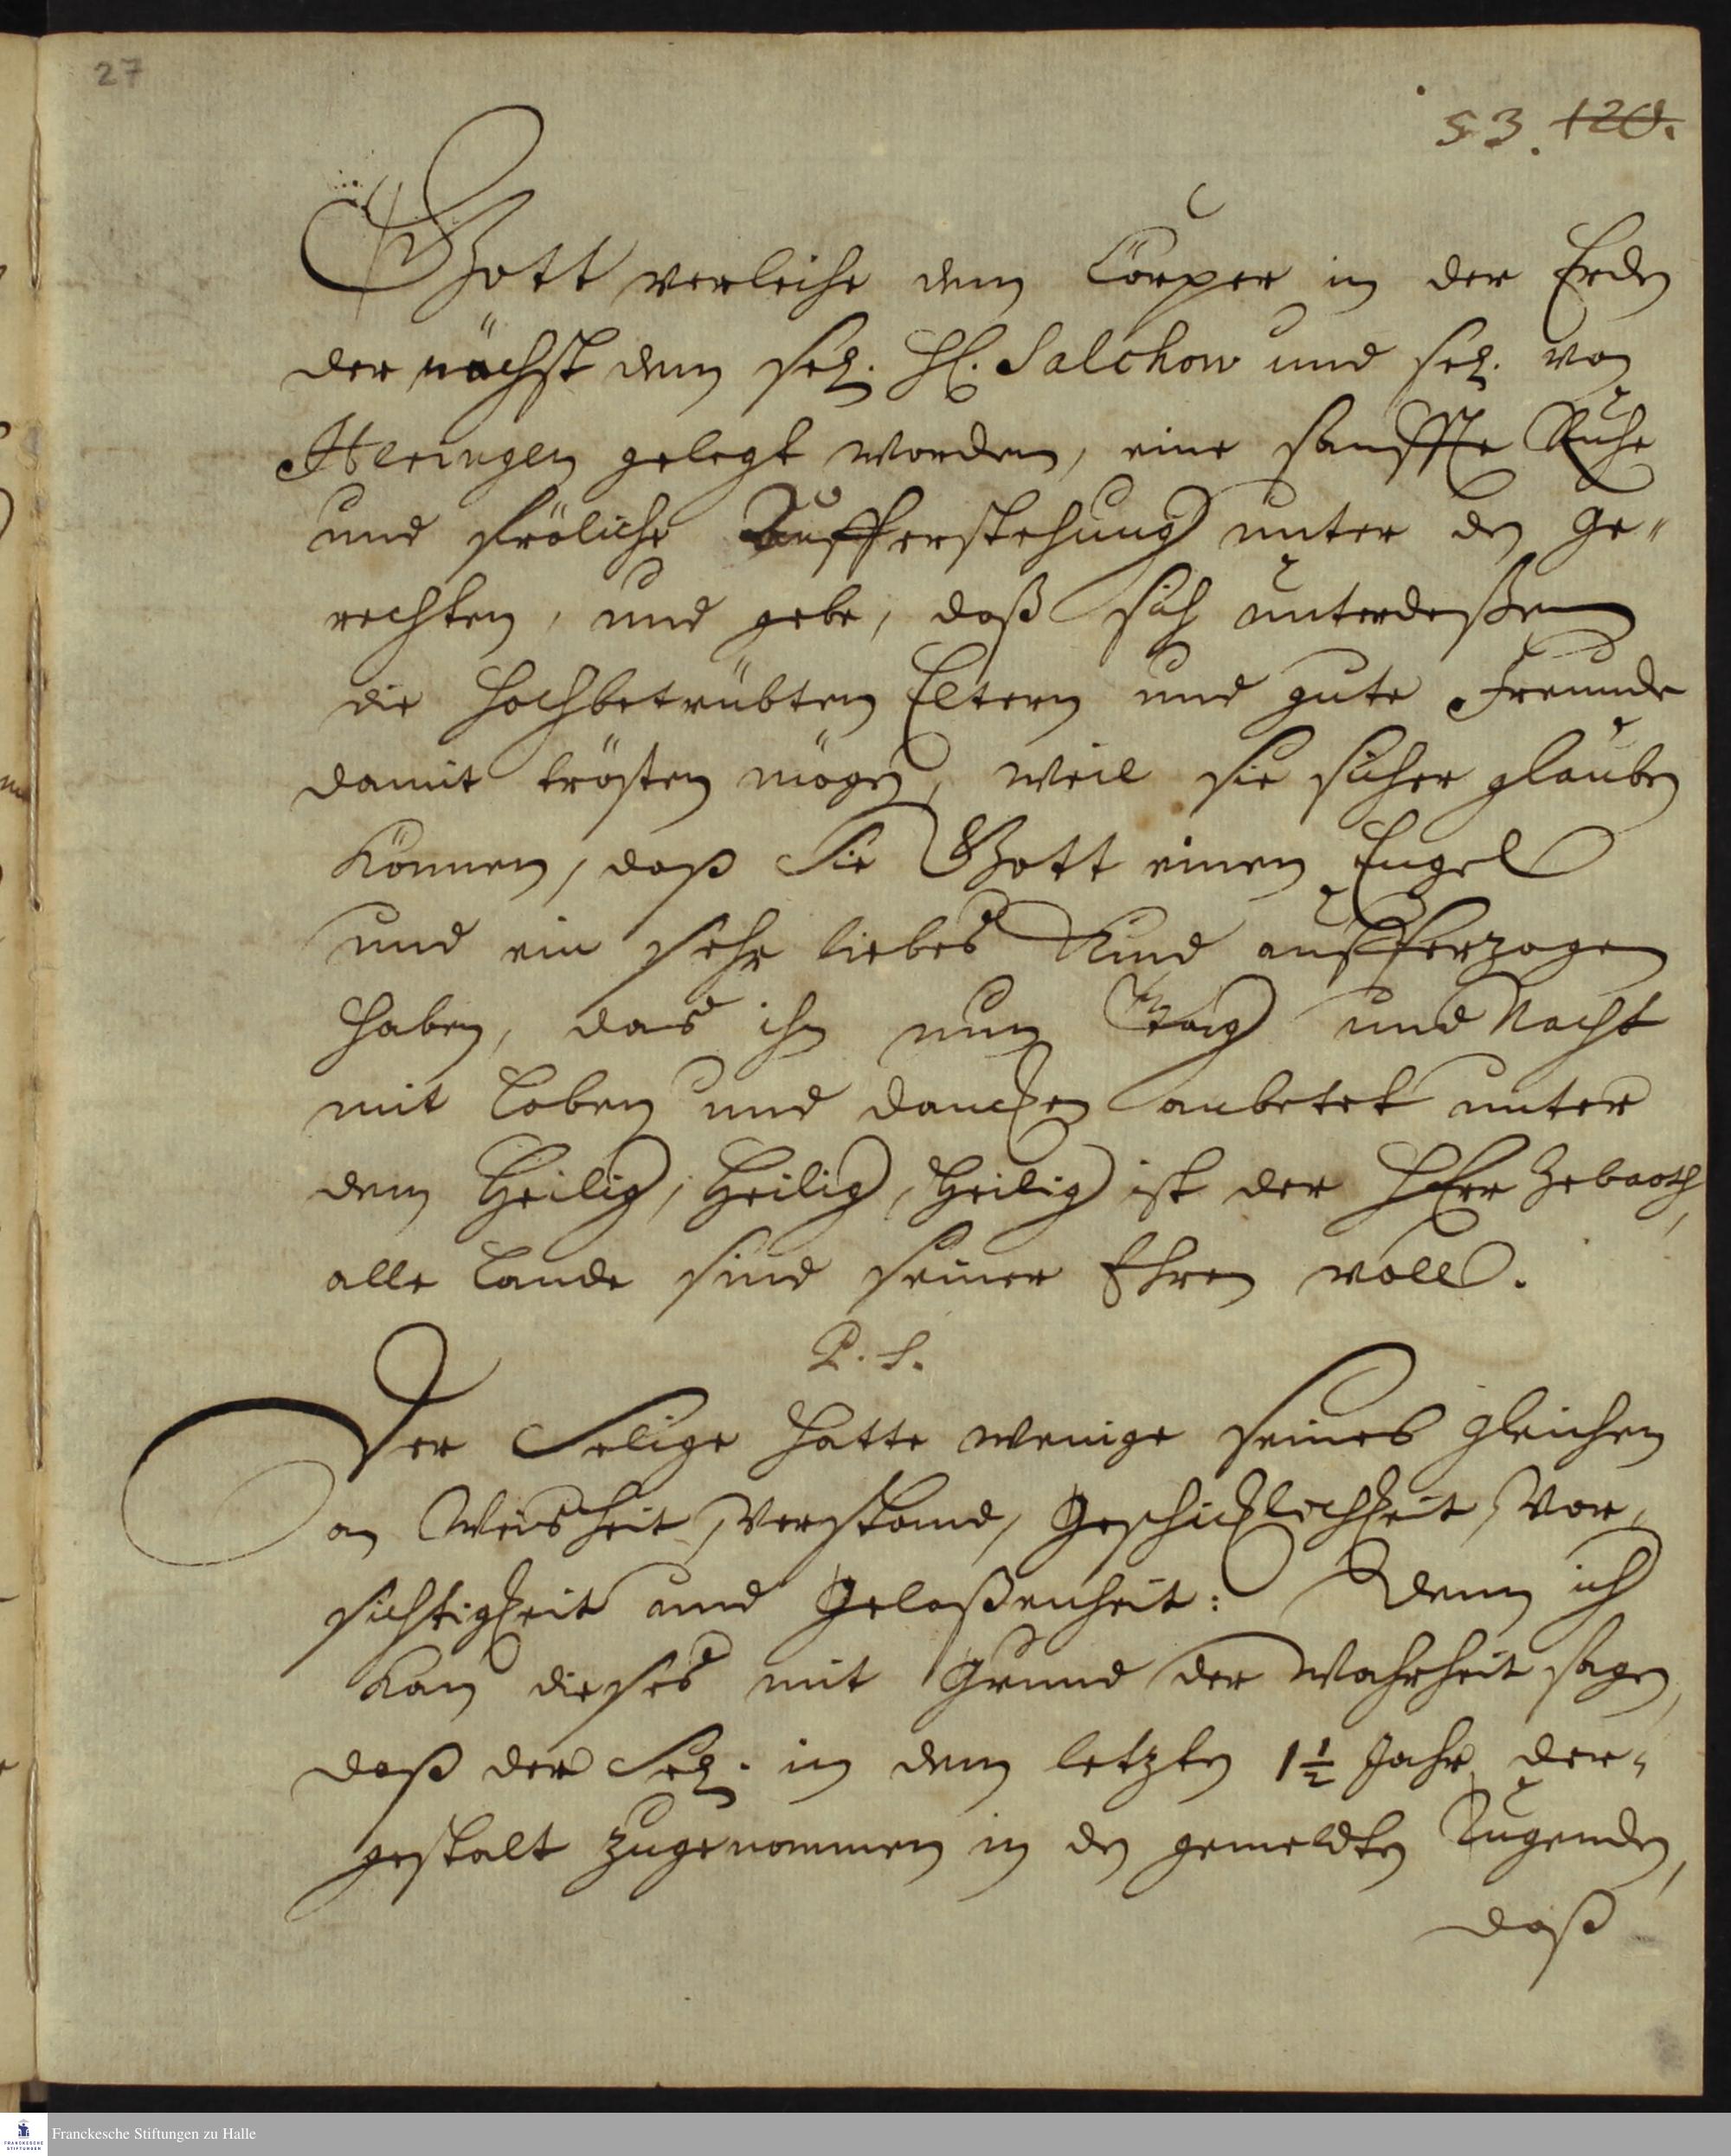 27
53. 120.
Gott verleihe dem Cörper in der Erden
der nächst dem sel. H. Salchow und sel. von
Heringen gelegt worden, eine sanffte Ruhe
und fröliche Aufferstehung unter den Ge-
rechten, und gebe, daß sich unterdeßen
die Hochbetrübten Eltern und gute Freunde
damit trösten mögen, weil sie sicher glauben
können, daß Sie Gott einen Engel
und ein sehr liebes Kind aufferzogen
haben, das ihn nun Tag und Nacht
mit Loben und dancken anbetet unter
dem Heilig, Heilig, Heilig ist der HErr Zebaoth,
alle Lande sind seiner Ehren voll.
P. S.
Der Selige hatte wenige seines gleichen
an Weisheit, Verstand, Geschicklichkeit, Vor-
sichtigkeit und Gelaßenheit: Denn ich
kan dieses mit Grund der Wahrheit sagen,
daß der Sel. in dem letzten 1 1/2 Jahr der-
gestalt zugenommen in den gemeldten Tugenden,
daß
FRANCKESCHE STIFTUNGEN
Franckesche Stiftungen zu Halle